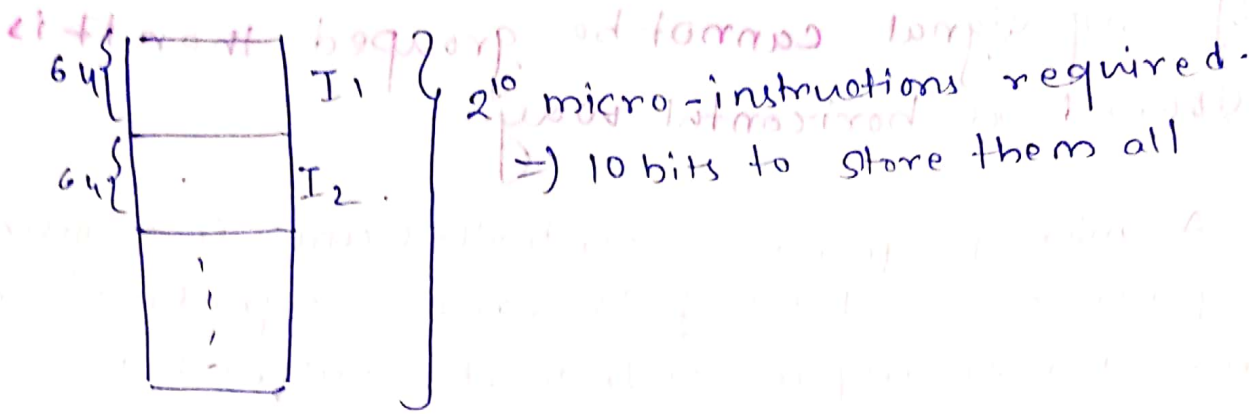 64{ I1
2^10 micro-instructions required.
=) 10 bits to store them all
64{ I2.